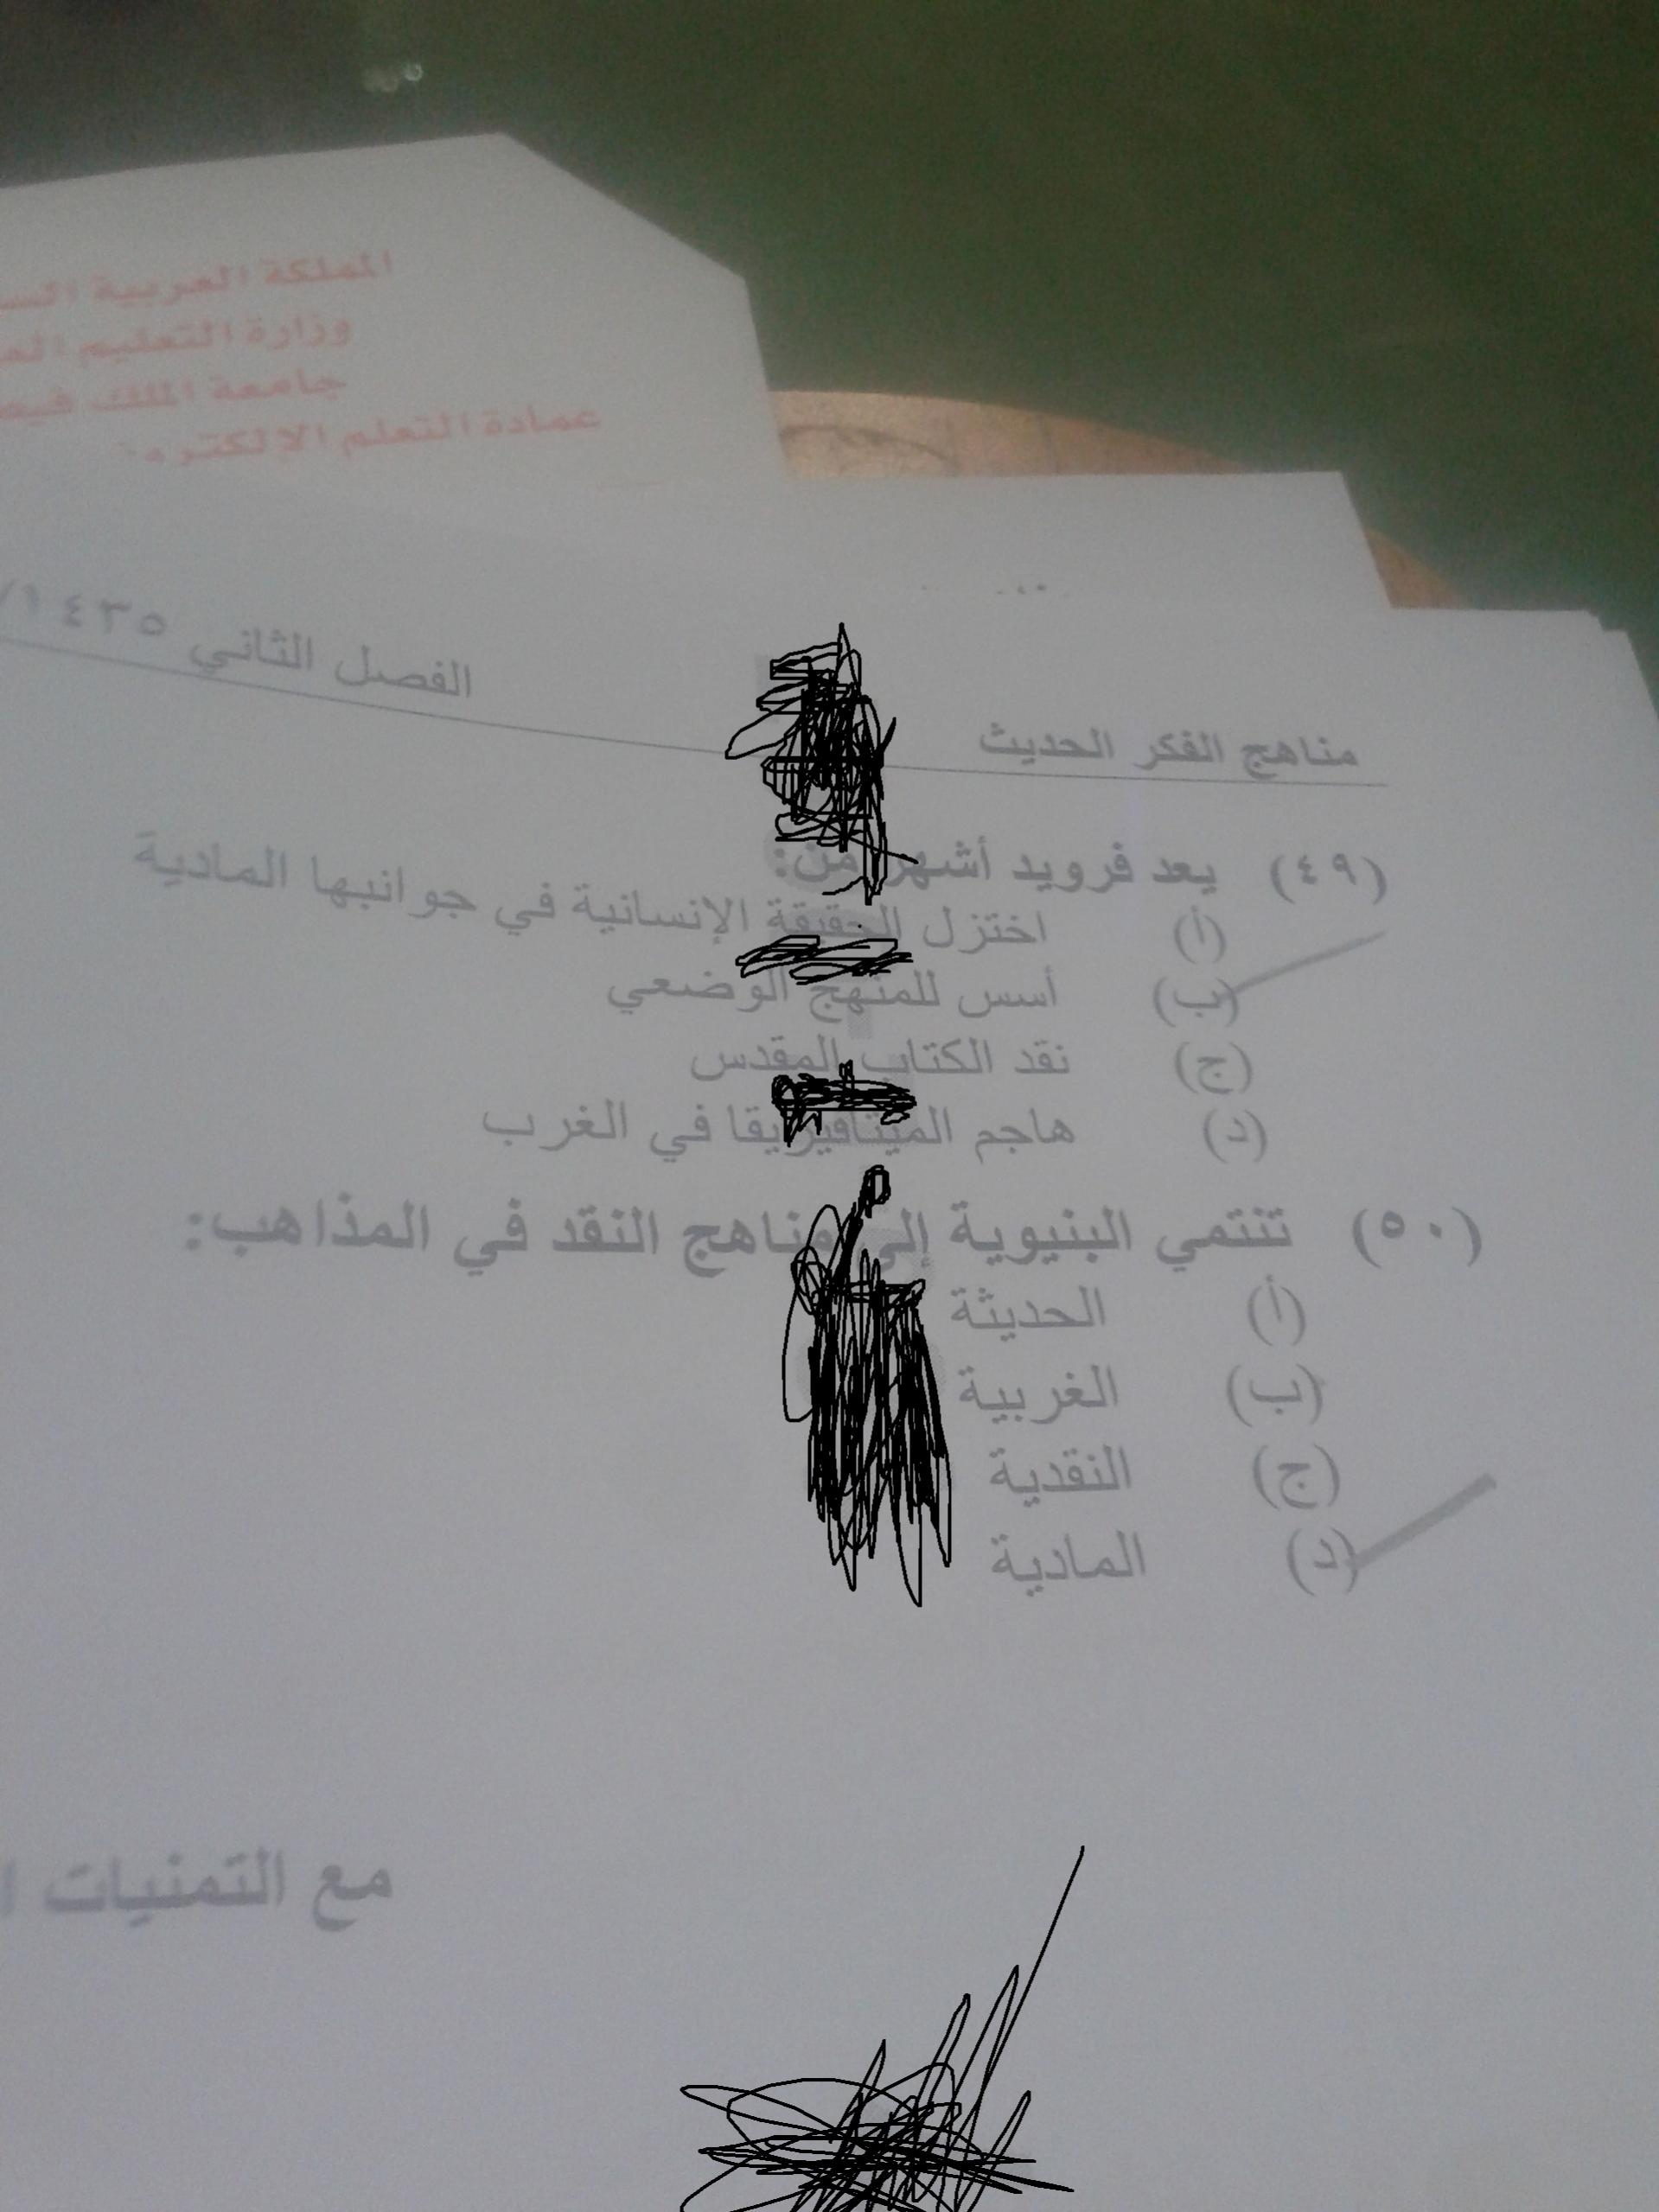 المملكة العربية
وزارة التعليم
جامعة الملك
عمادة التعلم
الفصل الثاني ١٤٣٥/
مناهج الفكر الحديث
(٤٩) يعد فرويد أشهر من:
(أ) اختزل الحقيقة الإنسانية في جوانبها المادية
(ب) أسس للمنهج الوضعي
(ج) نقد الكتاب المقدس
(د) هاجم الميتافيزيقا في الغرب
(٥٠) تنتمي البنيوية إلى مناهج النقد في المذاهب:
(أ) الحديثة
(ب) الغربية
(ج) النقدية
(د) المادية
مع التمنيات